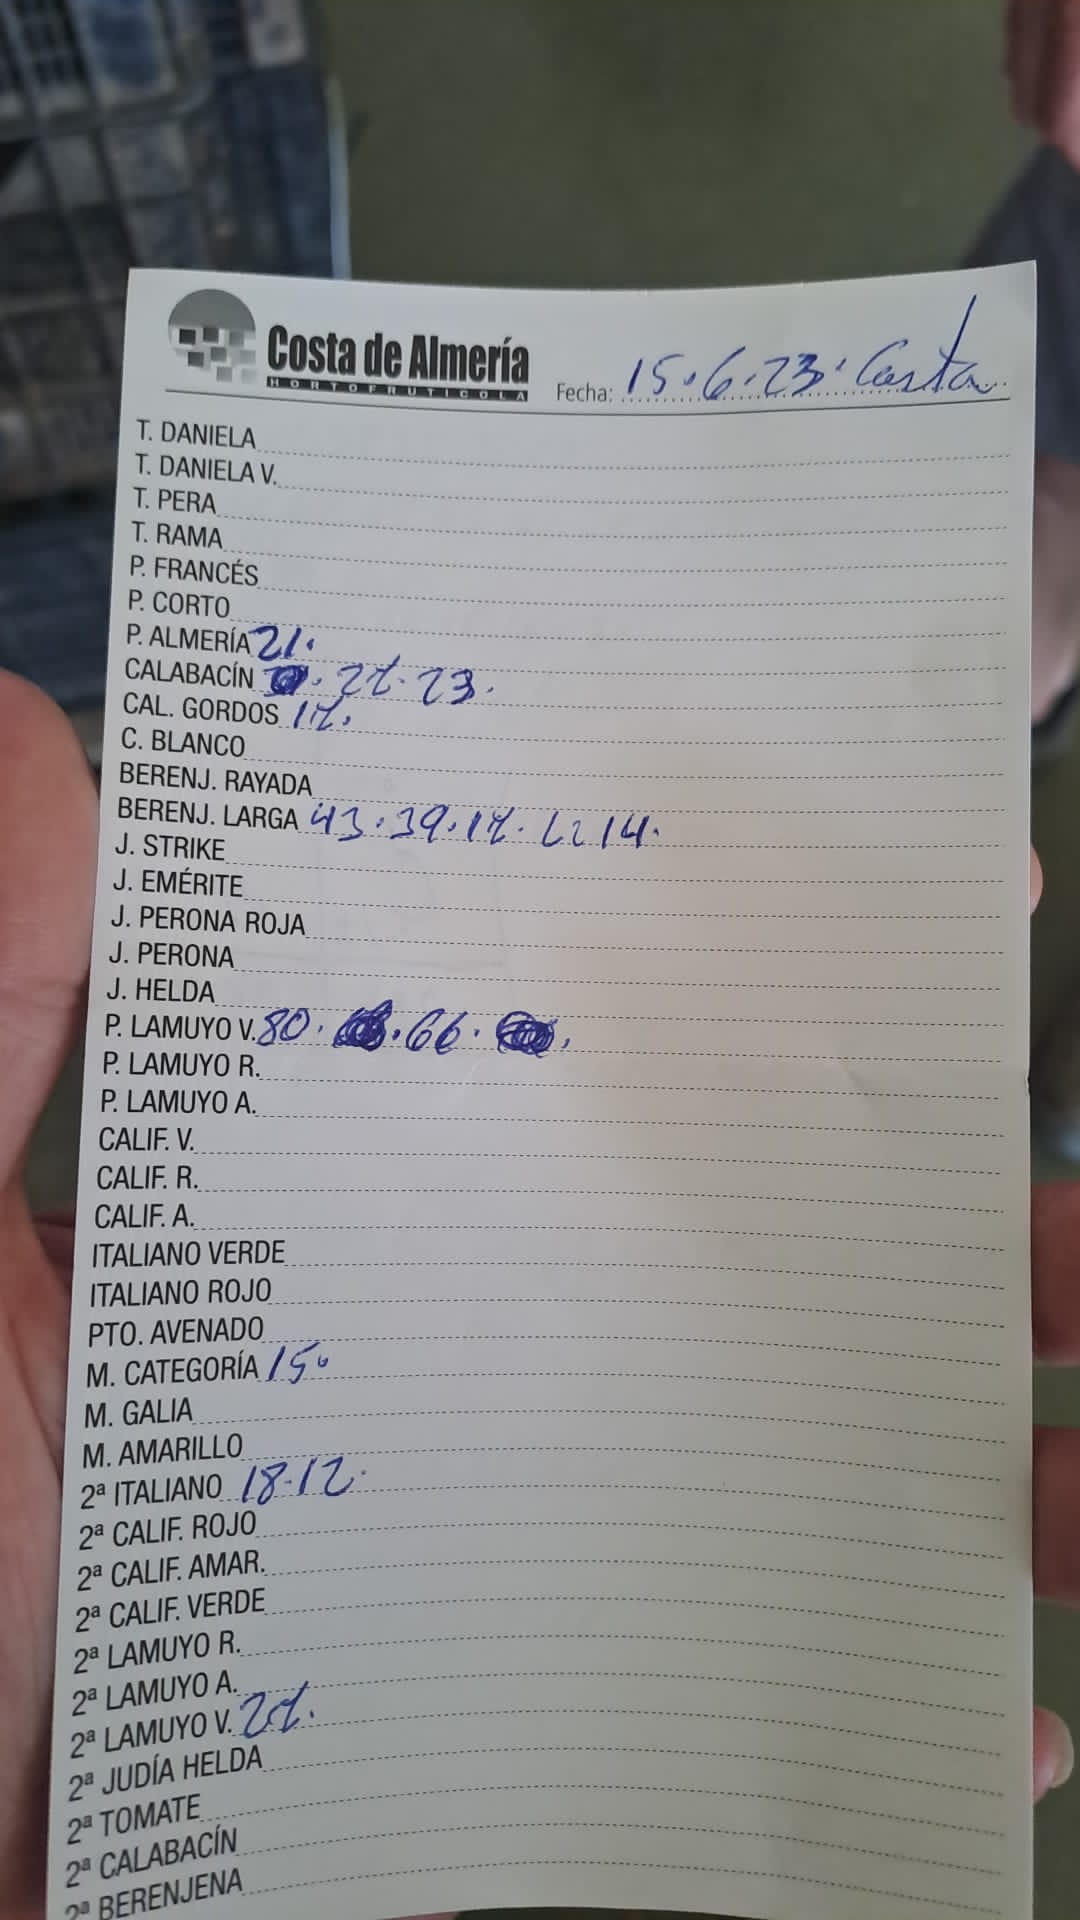 Costa de Almería
HORTOFRUTICOLA
Fecha: 15.6.23. Costa
T. DANIELA
T. DANIELA V.
T. PERA
T. RAMA
P. FRANCÉS
P. CORTO
P. ALMERÍA 21.
CALABACÍN 27. 23.
CAL. GORDOS 17.
C. BLANCO
BERENJ. RAYADA
BERENJ. LARGA 43. 39. 17. 14.
J. STRIKE
J. EMÉRITE
J. PERONA ROJA
J. PERONA
J. HELDA
P. LAMUYO V. 80. 66.
P. LAMUYO R.
P. LAMUYO A.
CALIF. V.
CALIF. R.
CALIF. A.
ITALIANO VERDE
ITALIANO ROJO
PTO. AVENADO
M. CATEGORÍA 15.
M. GALIA
M. AMARILLO
2ª ITALIANO 18.12.
2ª CALIF. ROJO
2ª CALIF. AMAR.
2ª CALIF. VERDE
2ª LAMUYO R.
2ª LAMUYO A.
2ª LAMUYO V. 27.
2ª JUDÍA HELDA
2ª TOMATE
2ª CALABACÍN
2ª BERENJENA